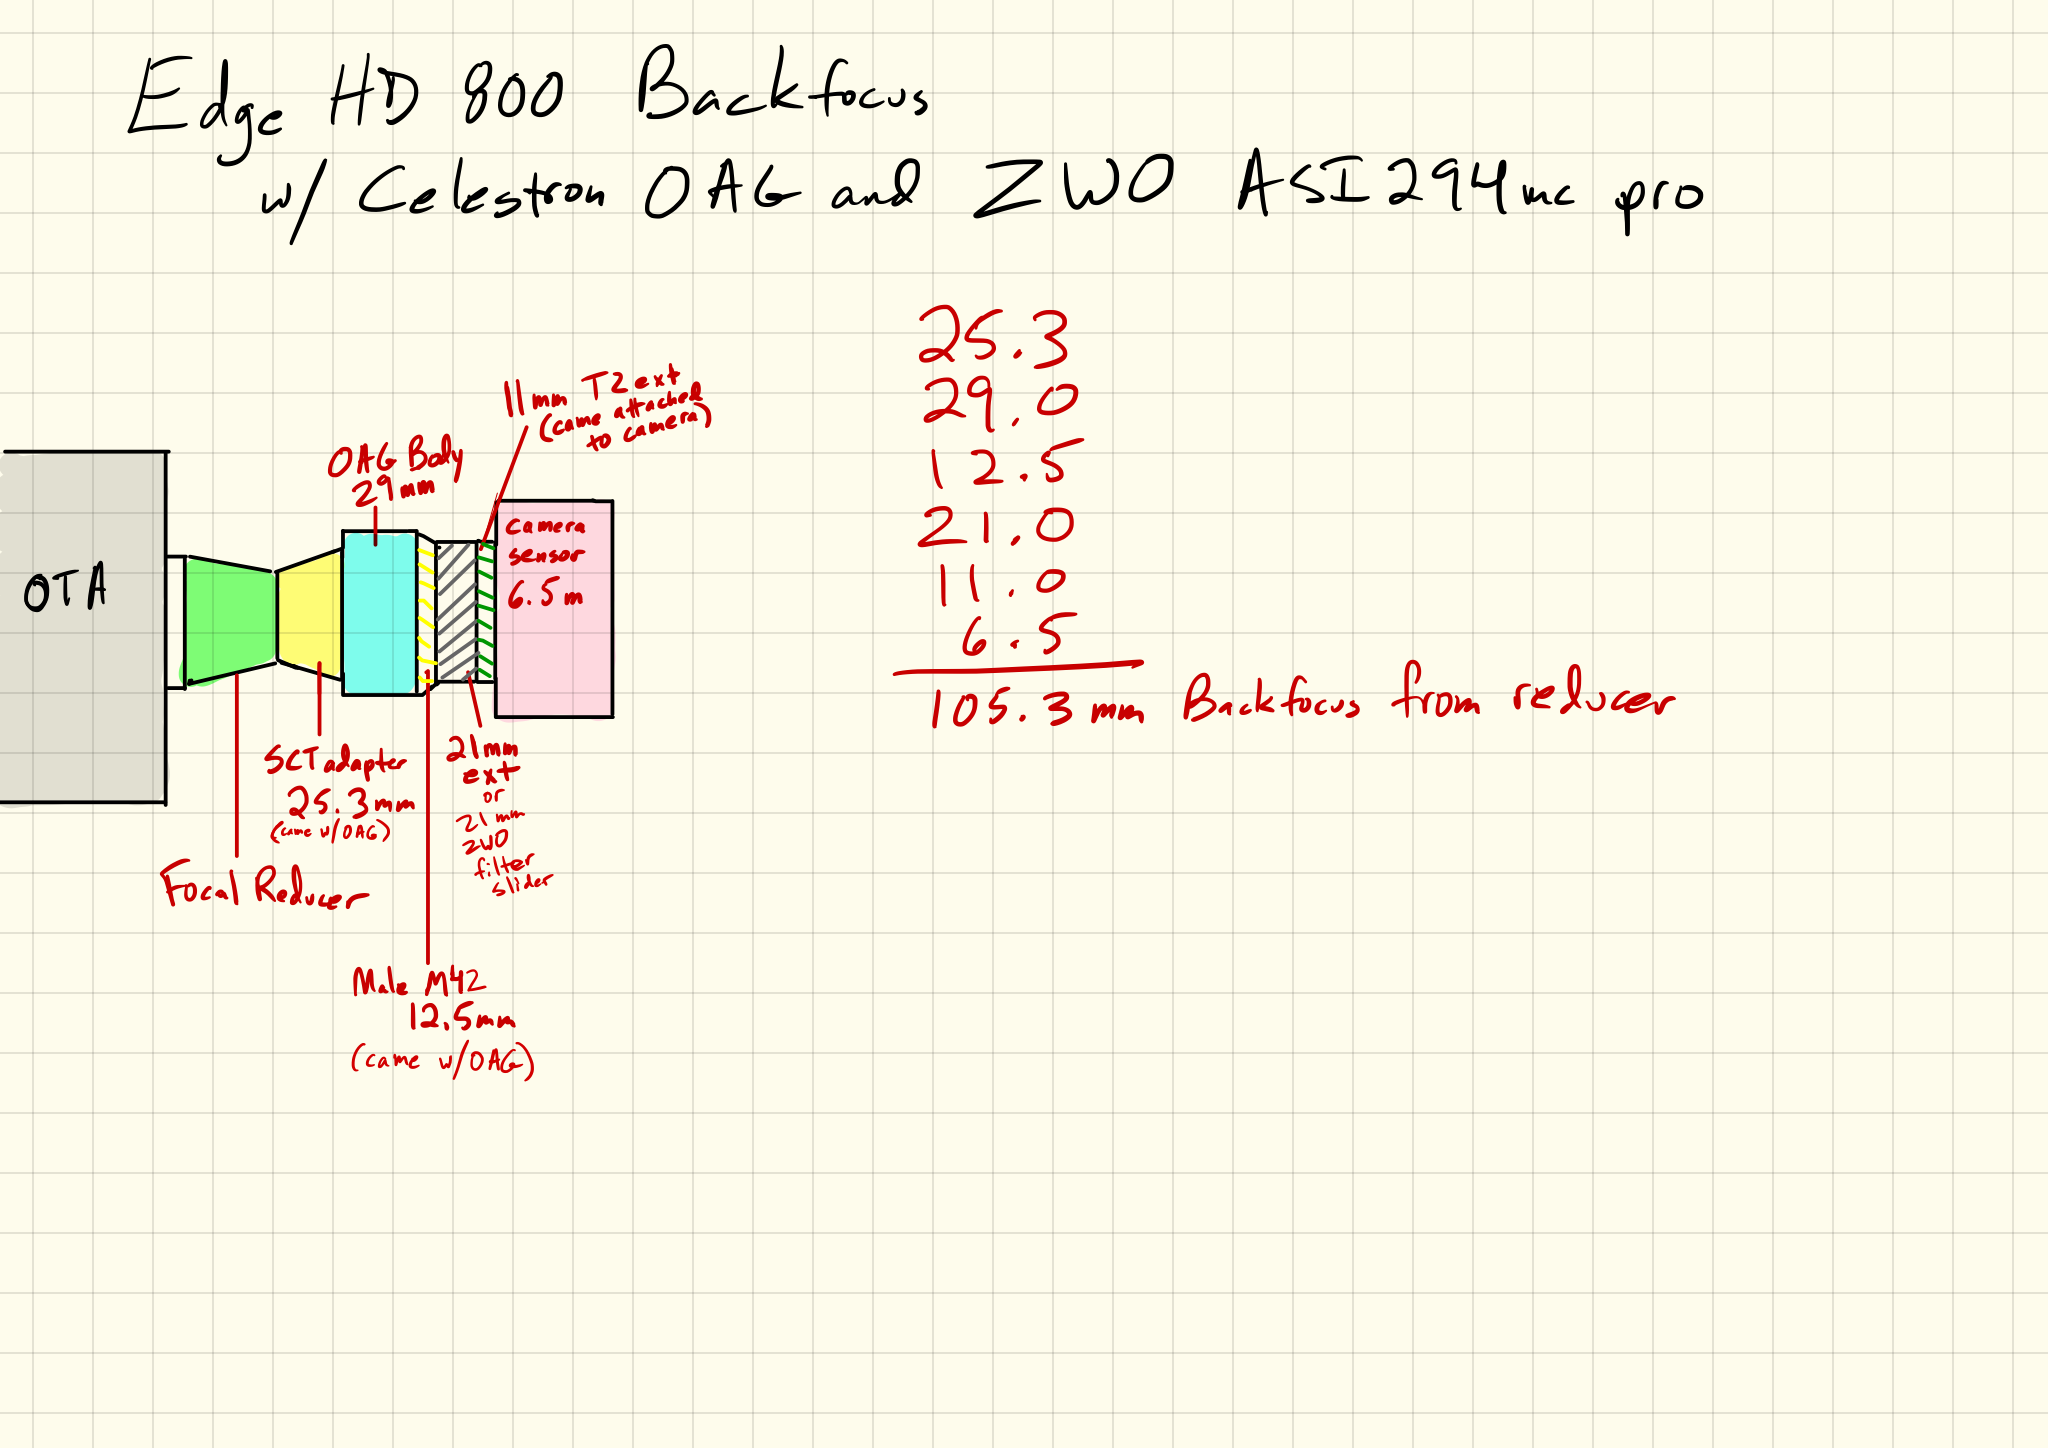 Edge HD 800 Backfocus
w/ Celestron OAG and ZWO ASI294mc pro
11mm T2 ext
(came attached
to camera)
OAG Body
29mm
OTA
camera
sensor
6.5m
SCT adapter
25.3mm
(came w/OAG)
21mm
ext
or
21mm
ZWO
filter
slider
Focal Reducer
Male M42
12.5mm
(came w/OAG)
25.3
29.0
12.5
21.0
11.0
6.5
105.3 mm Backfocus from reducer